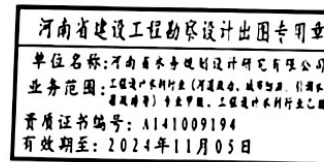 河南省建设工程勘察设计出图专用章
单位名称:河南省水务规划设计研究有限公司
业务范围:工程设计水利行业(河道整治、城市防洪、引调水
灌溉排涝)专业甲级、工程设计水利行业乙级
资质证书编号:A141009194
有效期至:2024年11月05日